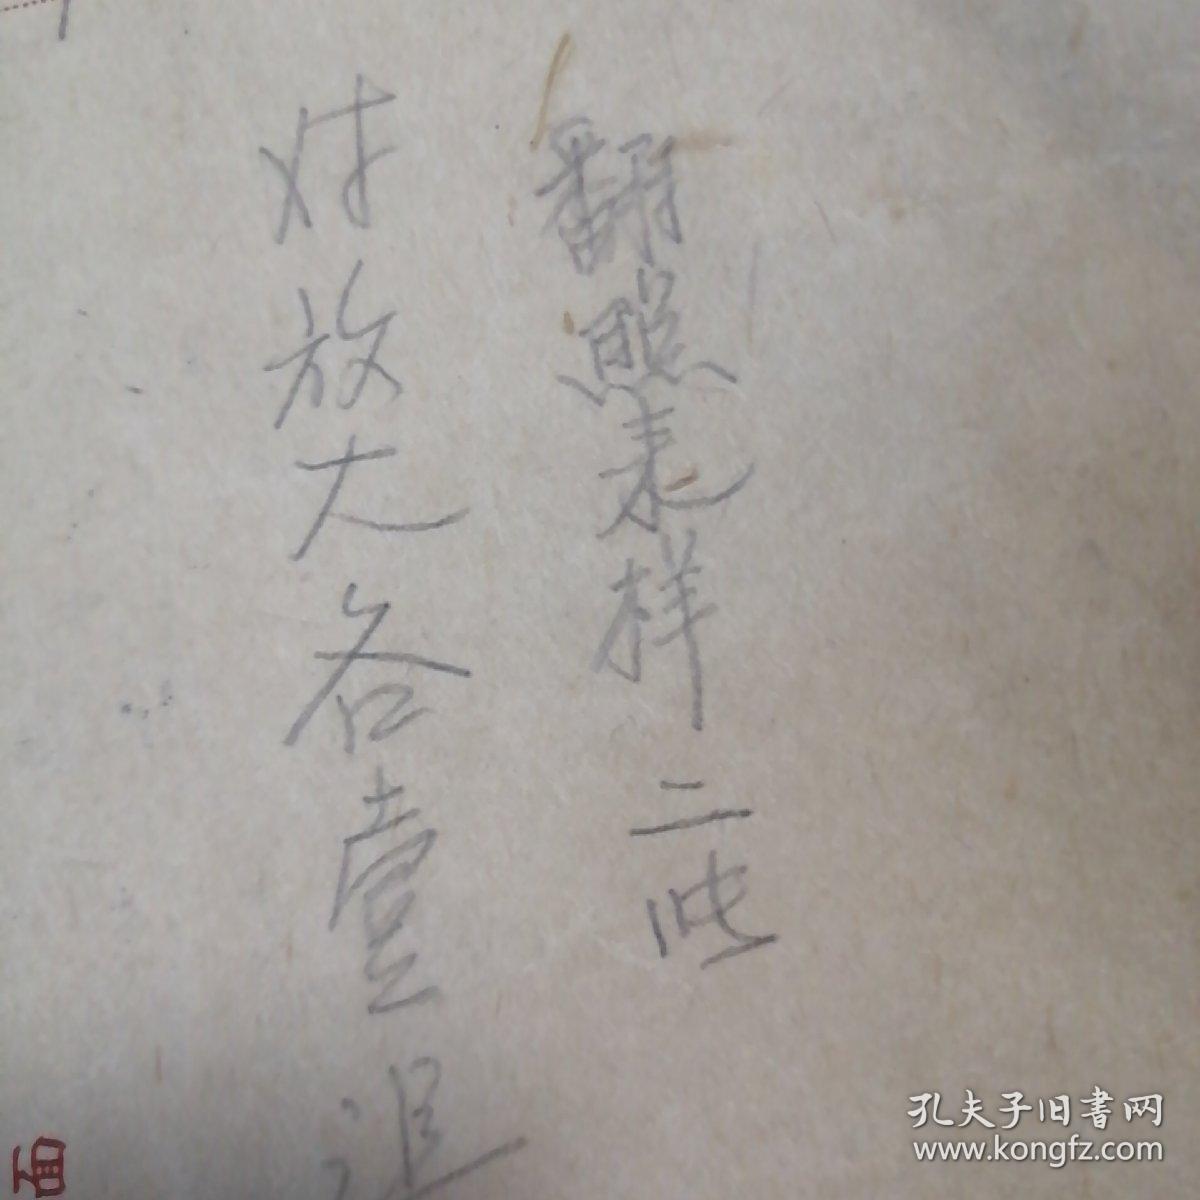 翻照来样二些
对放大各壹
面
孔夫子旧书网
www.kongfz.com